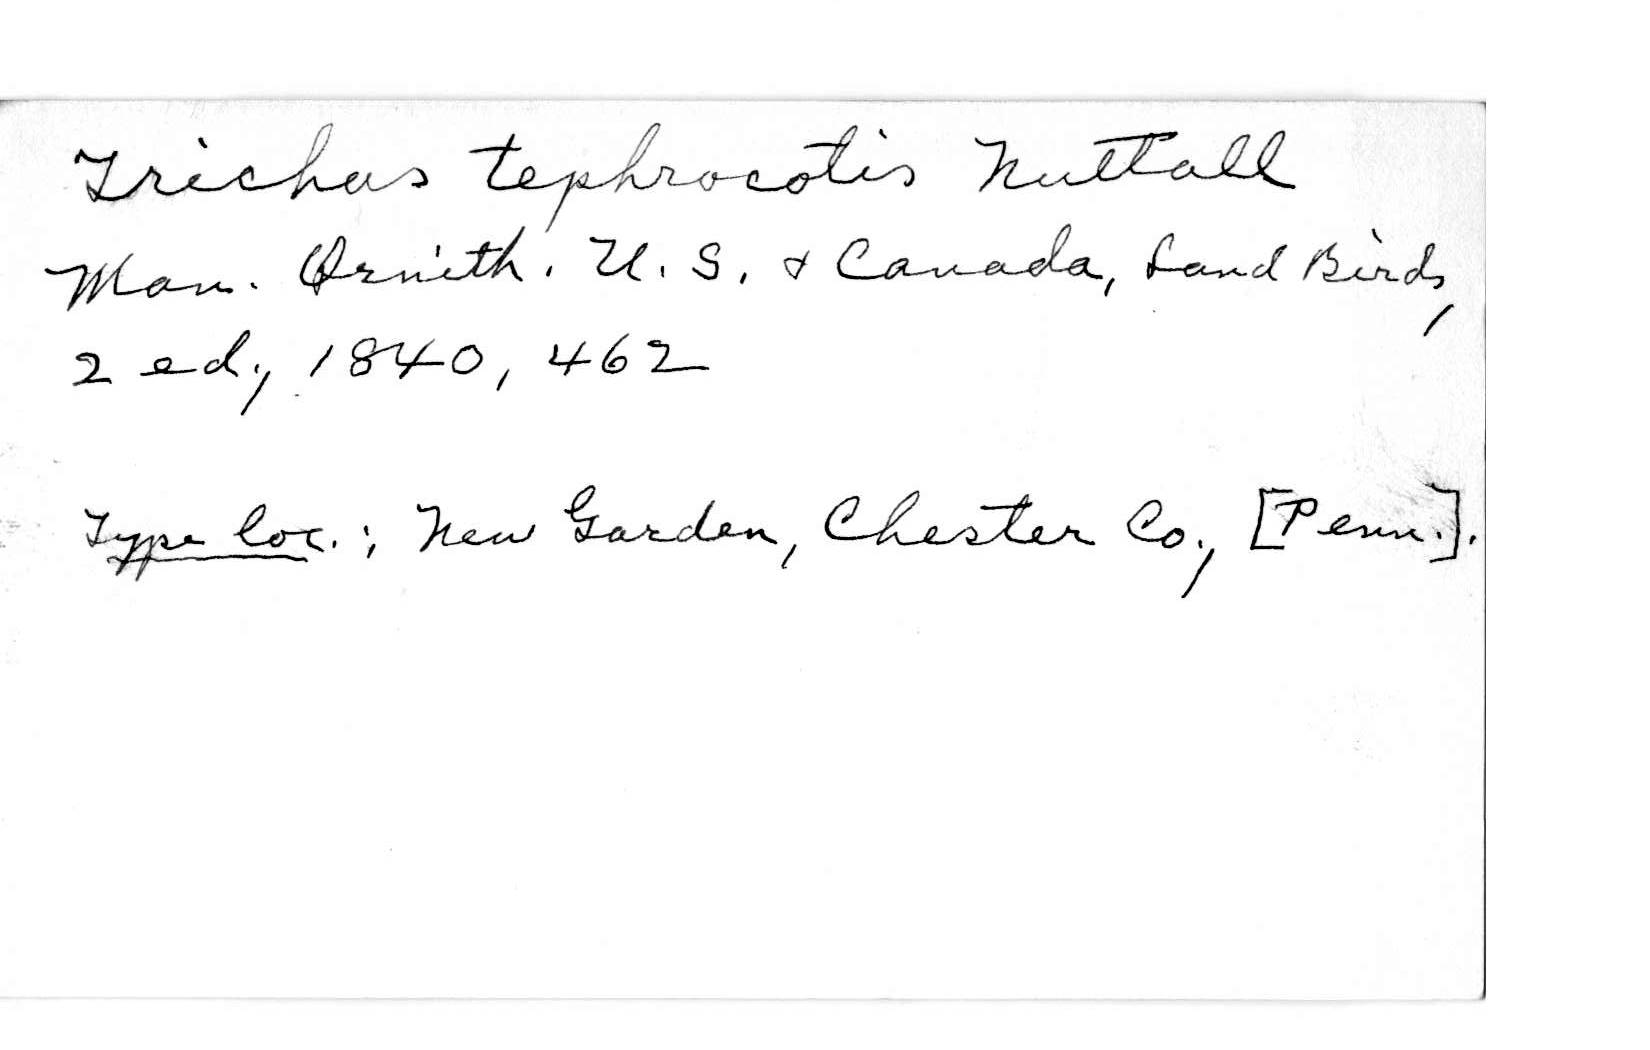 Trichas tephrocotis Nuttall
Man. Ornith. U. S. & Canada, Land Birds,
2 ed., 1840, 462
Type loc.: New Garden, Chester Co., [Penn.].